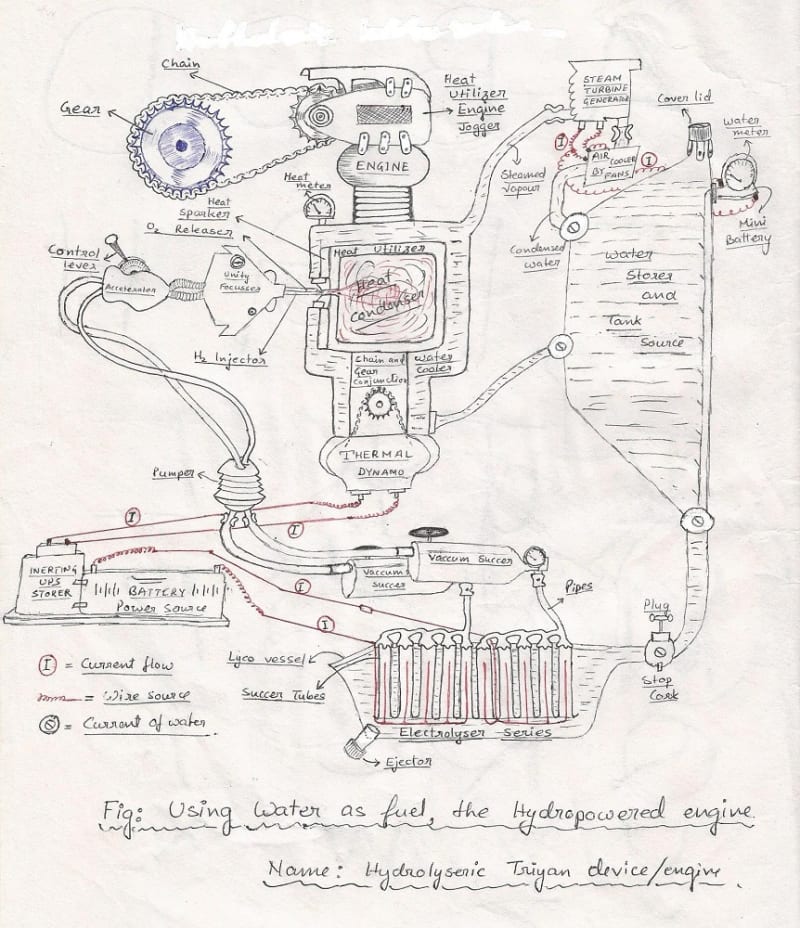 Chain
Gear
Heat
Utilizer
Engine
Jogger
ENGINE
STEAM
TURBINE
GENERATOR
Cover lid
Water
meter
AIR
COOLER
BY
FANS
I
I
Mini
Battery
Steamed
Vapour
Condensed
water
Heat
meter
Heat
Sparker
O₂ Releaser
Control
lever
Accelerator
Unity
Focusser
H₂ Injector
Heat Utilizer
Heat
condenser
Water
Storer
and
Tank
Source
Chain and
Gear
Conjunction
Water
Cooler
THERMAL
DYNAMO
Pumper
I
I
INERTING
UPS
STORER
BATTERY
Power Source
Vaccum
Succer
Vaccum Succer
I
I
Pipes
Plug
Stop
Cock
Lyco vessel
Succer Tubes
Electrolyser Series
Ejector
I = Current flow
= Wire source
= Current of water.
Fig: Using Water as fuel, the Hydropowered engine.
Name: Hydrolyseric Triyan device/engine.